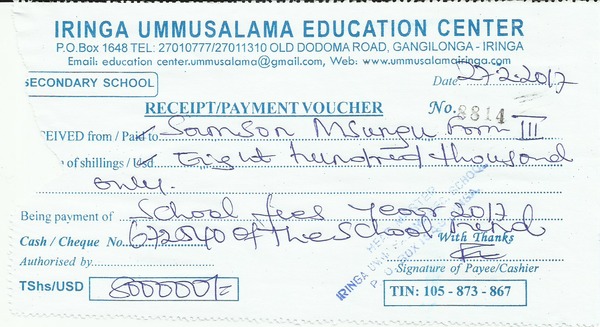 IRINGA UMMUSALAMA EDUCATION CENTER
P.O.Box 1648 TEL: 27010777/27011310 OLD DODOMA ROAD, GANGILONGA - IRINGA
Email: education center.ummusalama@gmail.com, Web: www.ummusalamairinga.com
ECONDARY SCHOOL
Date: 27.2.2017
RECEIPT/PAYMENT VOUCHER No. 8814
CEIVED from / Paid to Samson Msungu Form III
of shillings / Usd Eight hundred thousand
only.
Being payment of School fees Year 2017
Cash / Cheque No. 672540 of the School
With Thanks
Authorised by
Signature of Payee/Cashier
TShs/USD 800000/=
TIN: 105 - 873 - 867
IRINGA
P.O. BOX